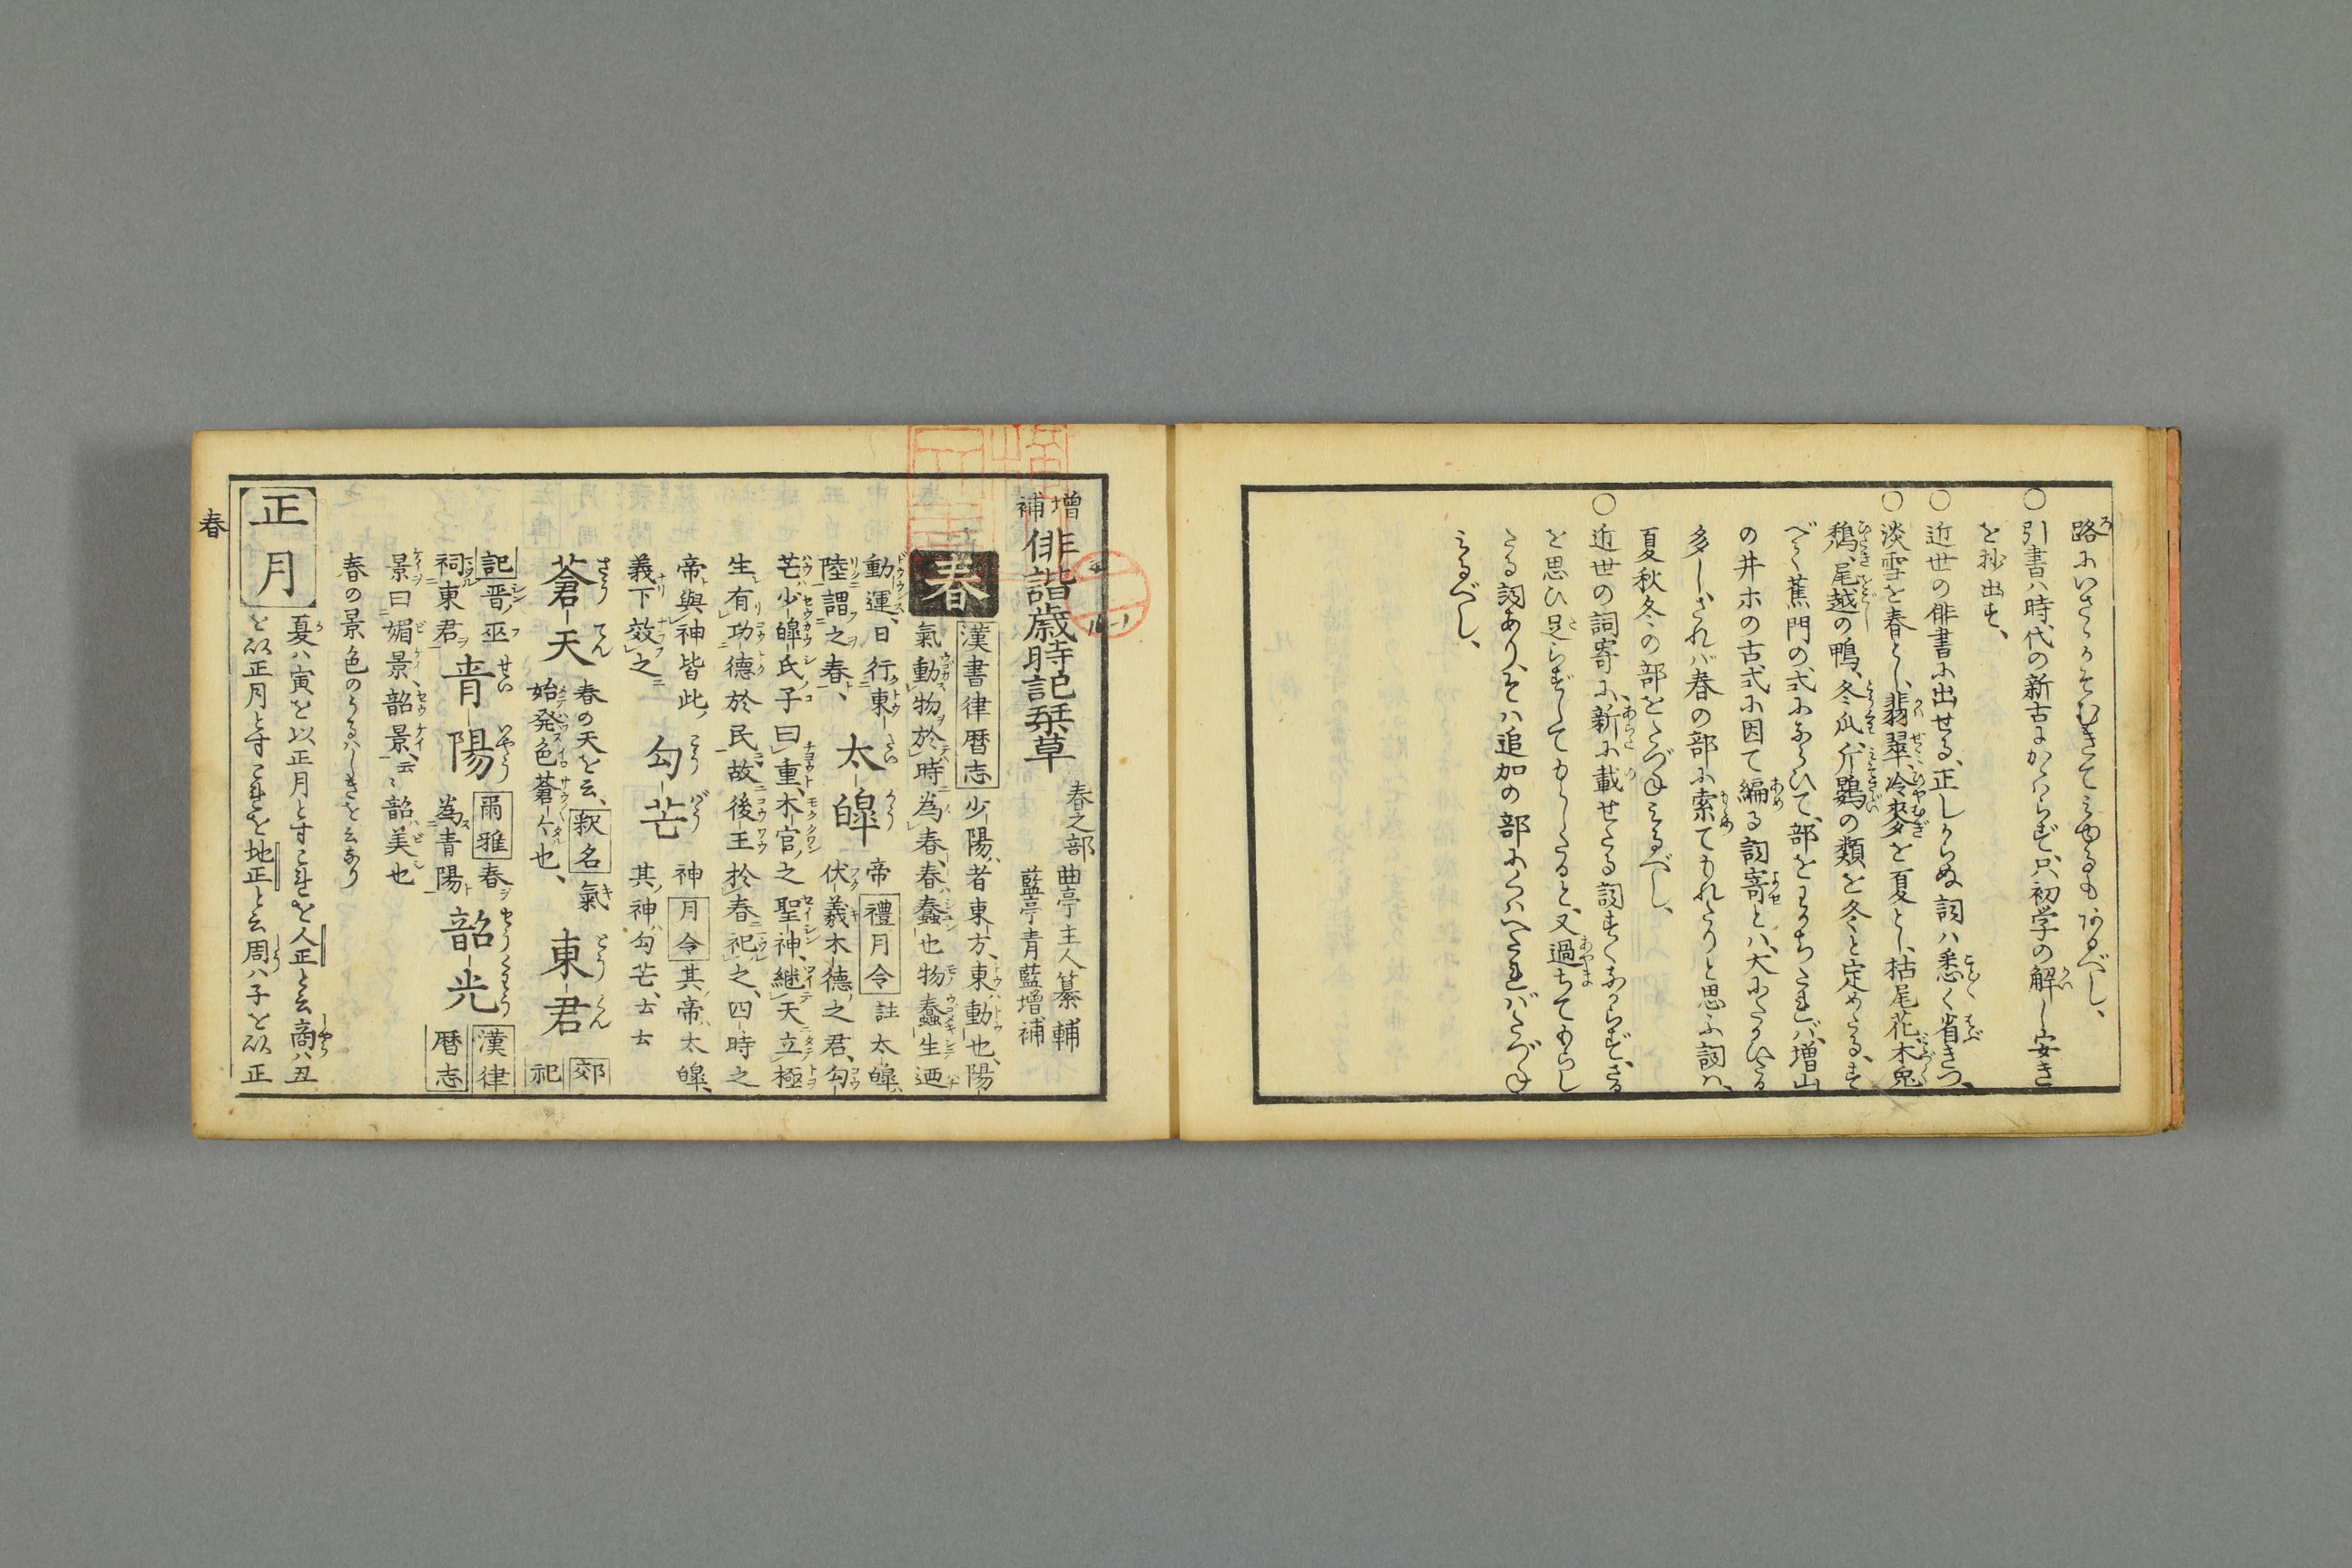 路にいさゝかそむきて見ゆるもあるべし、
○引書ハ時代の新古にかゝハらず、只初学の解し安き
を抄出す、
○近世の俳書に出せる、正しからぬ詞ハ悉く省きつ、
○淡雪を春とし、翡翠、冷麥を夏とし、枯尾花、木兎
鵯、尾越の鴨、冬瓜、斤鷃の類を冬と定めたる、す
べて蕉門の式にならひて、部をわかちたれバ、増山
の井ホの古式に因て編る詞寄とハ、大にたがひたる
多し、されバ春の部に索てもれたりと思ふ詞ハ、
夏秋冬の部をたづね見るべし、
○近世の詞寄に、新に載せたる詞すくなからず、さる
を思ひ足らずしてもらしたると、又過ちてもらし
たる詞あり、そハ追加の部にくハへたれバたづね
見るべし、
増補 俳諧歳時記栞草 春之部 曲亭主人纂輯
藍亭青藍増補
春 漢書律暦志 少陽ハ者東方、東ハ動也、陽
氣動物於時為春、春ハ蠢也物蠢生迺
動運、日行東
陸謂之春、
太皡 帝 禮月令 註 太皡、
伏羲木德之君、勾
芒ハ少皡氏子曰重、木官之聖神、継天立極
生有功德於民故後王於春祀之、四時之
帝與神皆此
義下效之
勾芒 神 月令 其帝ハ太皡、
其神勾芒、云云
蒼天 春の天を云、釈名 氣
始発色蒼々也、
東君 郊祀
記晋巫
祠東君
青陽 爾雅 春ヲ
為青陽ト
韶光 漢律
暦志
景曰媚景、韶景、云云 韶ハ美也
春の景色のうるハしきを云なり
正月 夏ハ寅を以正月とすこれを人正と云商ハ丑
を以正月とすこれを地正と云周ハ子を以正
春